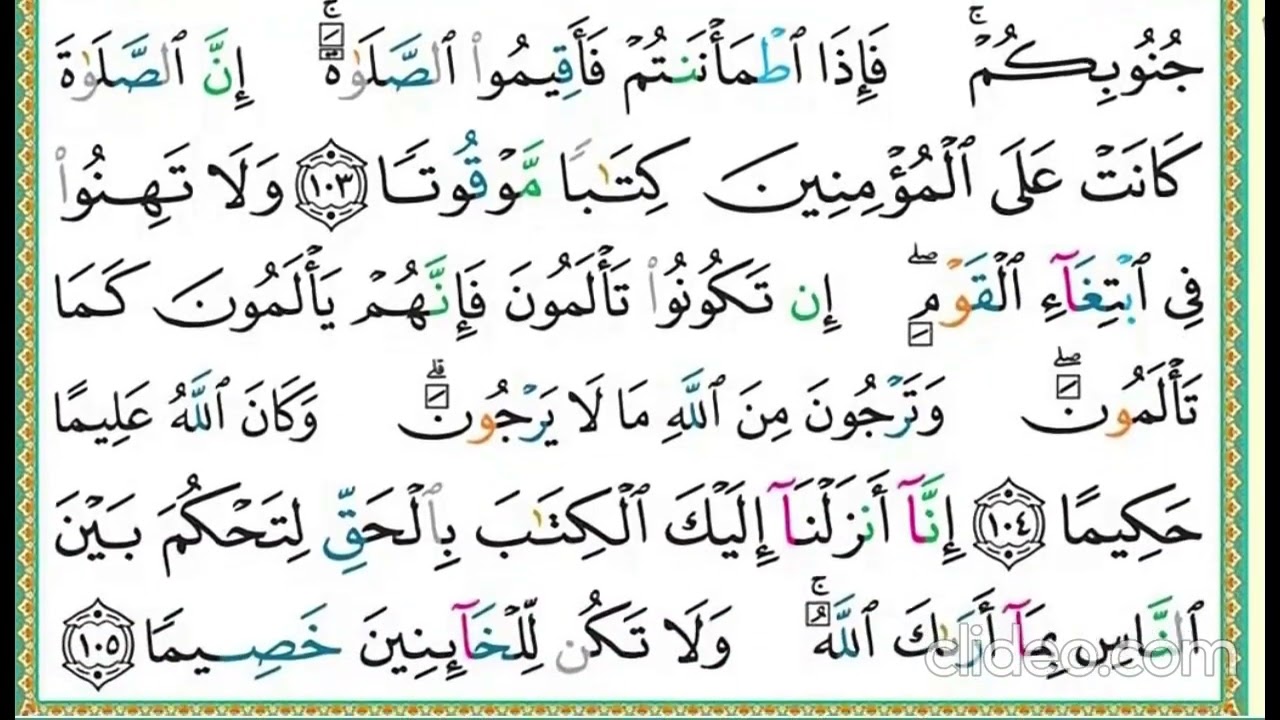 جُنُوبِكُمْ ۚ فَإِذَا ٱطْمَأْنَنتُمْ فَأَقِيمُوا۟ ٱلصَّلَوٰةَ ۚ إِنَّ ٱلصَّلَوٰةَ
كَانَتْ عَلَى ٱلْمُؤْمِنِينَ كِتَـٰبًا مَّوْقُوتًا ١٠٣ وَلَا تَهِنُوا۟
فِى ٱبْتِغَآءِ ٱلْقَوْمِ ۖ إِن تَكُونُوا۟ تَأْلَمُونَ فَإِنَّهُمْ يَأْلَمُونَ كَمَا
تَأْلَمُونَ ۖ وَتَرْجُونَ مِنَ ٱللَّهِ مَا لَا يَرْجُونَ ۗ وَكَانَ ٱللَّهُ عَلِيمًا
حَكِيمًا ١٠٤ إِنَّآ أَنزَلْنَآ إِلَيْكَ ٱلْكِتَـٰبَ بِٱلْحَقِّ لِتَحْكُمَ بَيْنَ
ٱلنَّاسِ بِمَآ أَرَىٰكَ ٱللَّهُ ۚ وَلَا تَكُن لِّلْخَآئِنِينَ خَصِيمًا ١٠٥
clideo.com